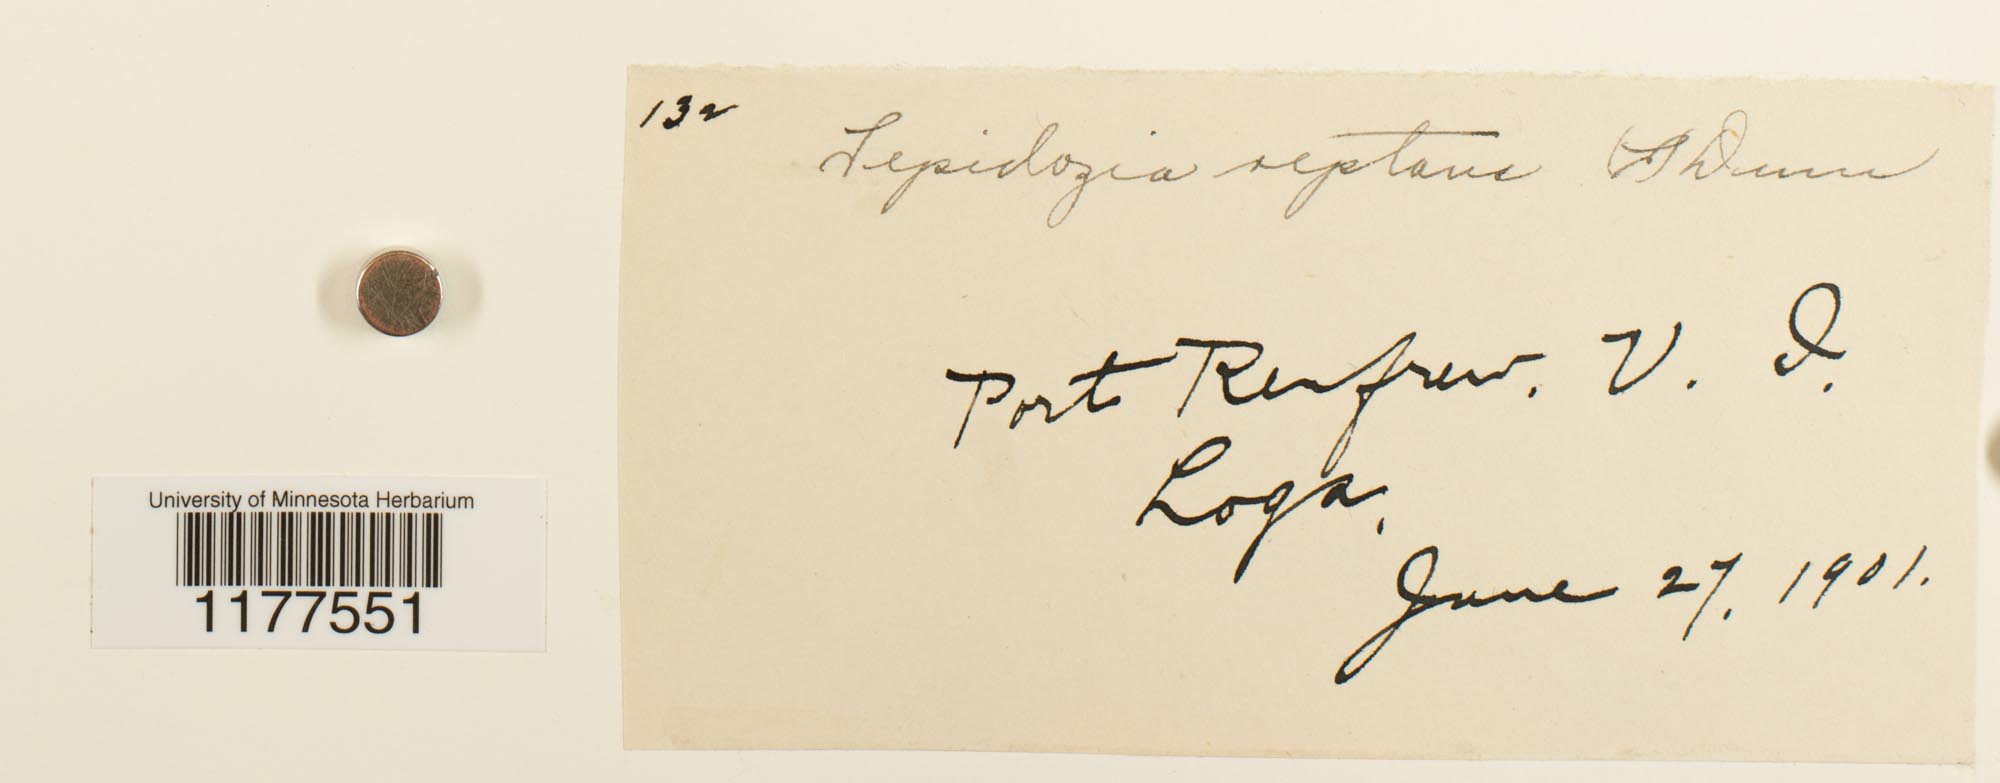 132
Lepidozia reptans (L) Dum
Port Renfrew. V. I.
Logs.
June 27, 1901.
University of Minnesota Herbarium
1177551